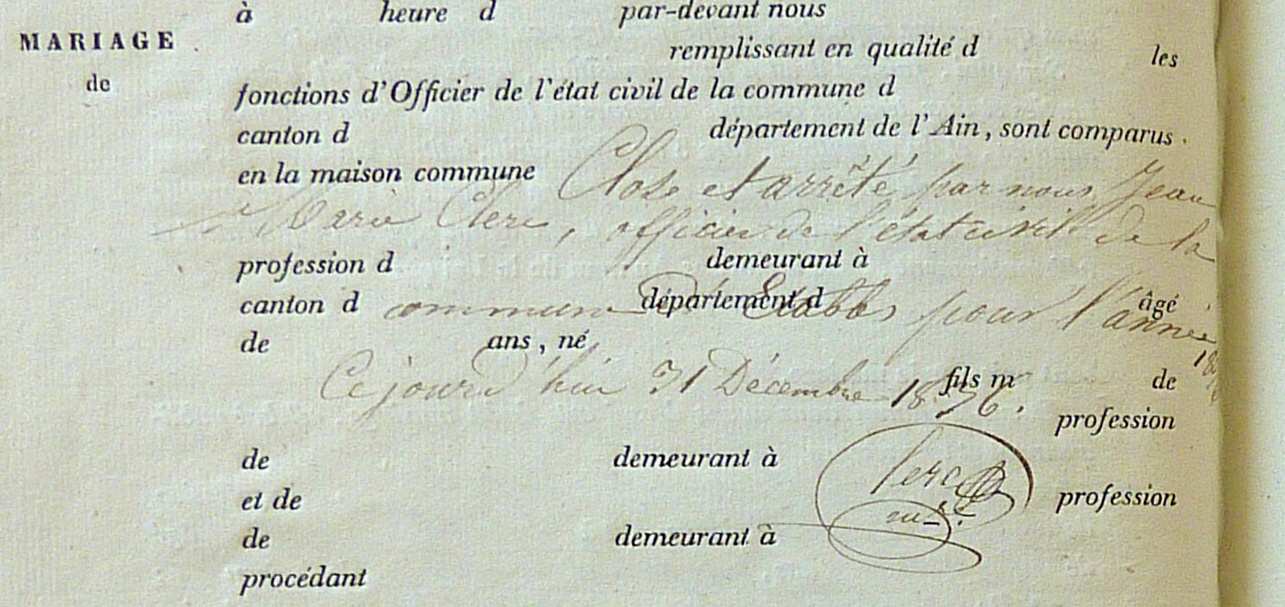 à heure d par-devant nous
MARIAGE
remplissant en qualité d les
de
fonctions d'Officier de l'état civil de la commune d
canton d département de l'Ain, sont comparus
en la maison commune Close et arrêté par nous Jean
Marie Clerc, officier de l'état civil de la
profession d demeurant à
canton d département d âgé
commune d' pour l'année
de ans, né
Ce jourd'hui 31 Décembre 1876.
fils m de
profession
de demeurant à
Clerc
et de profession
de demeurant à
procédant